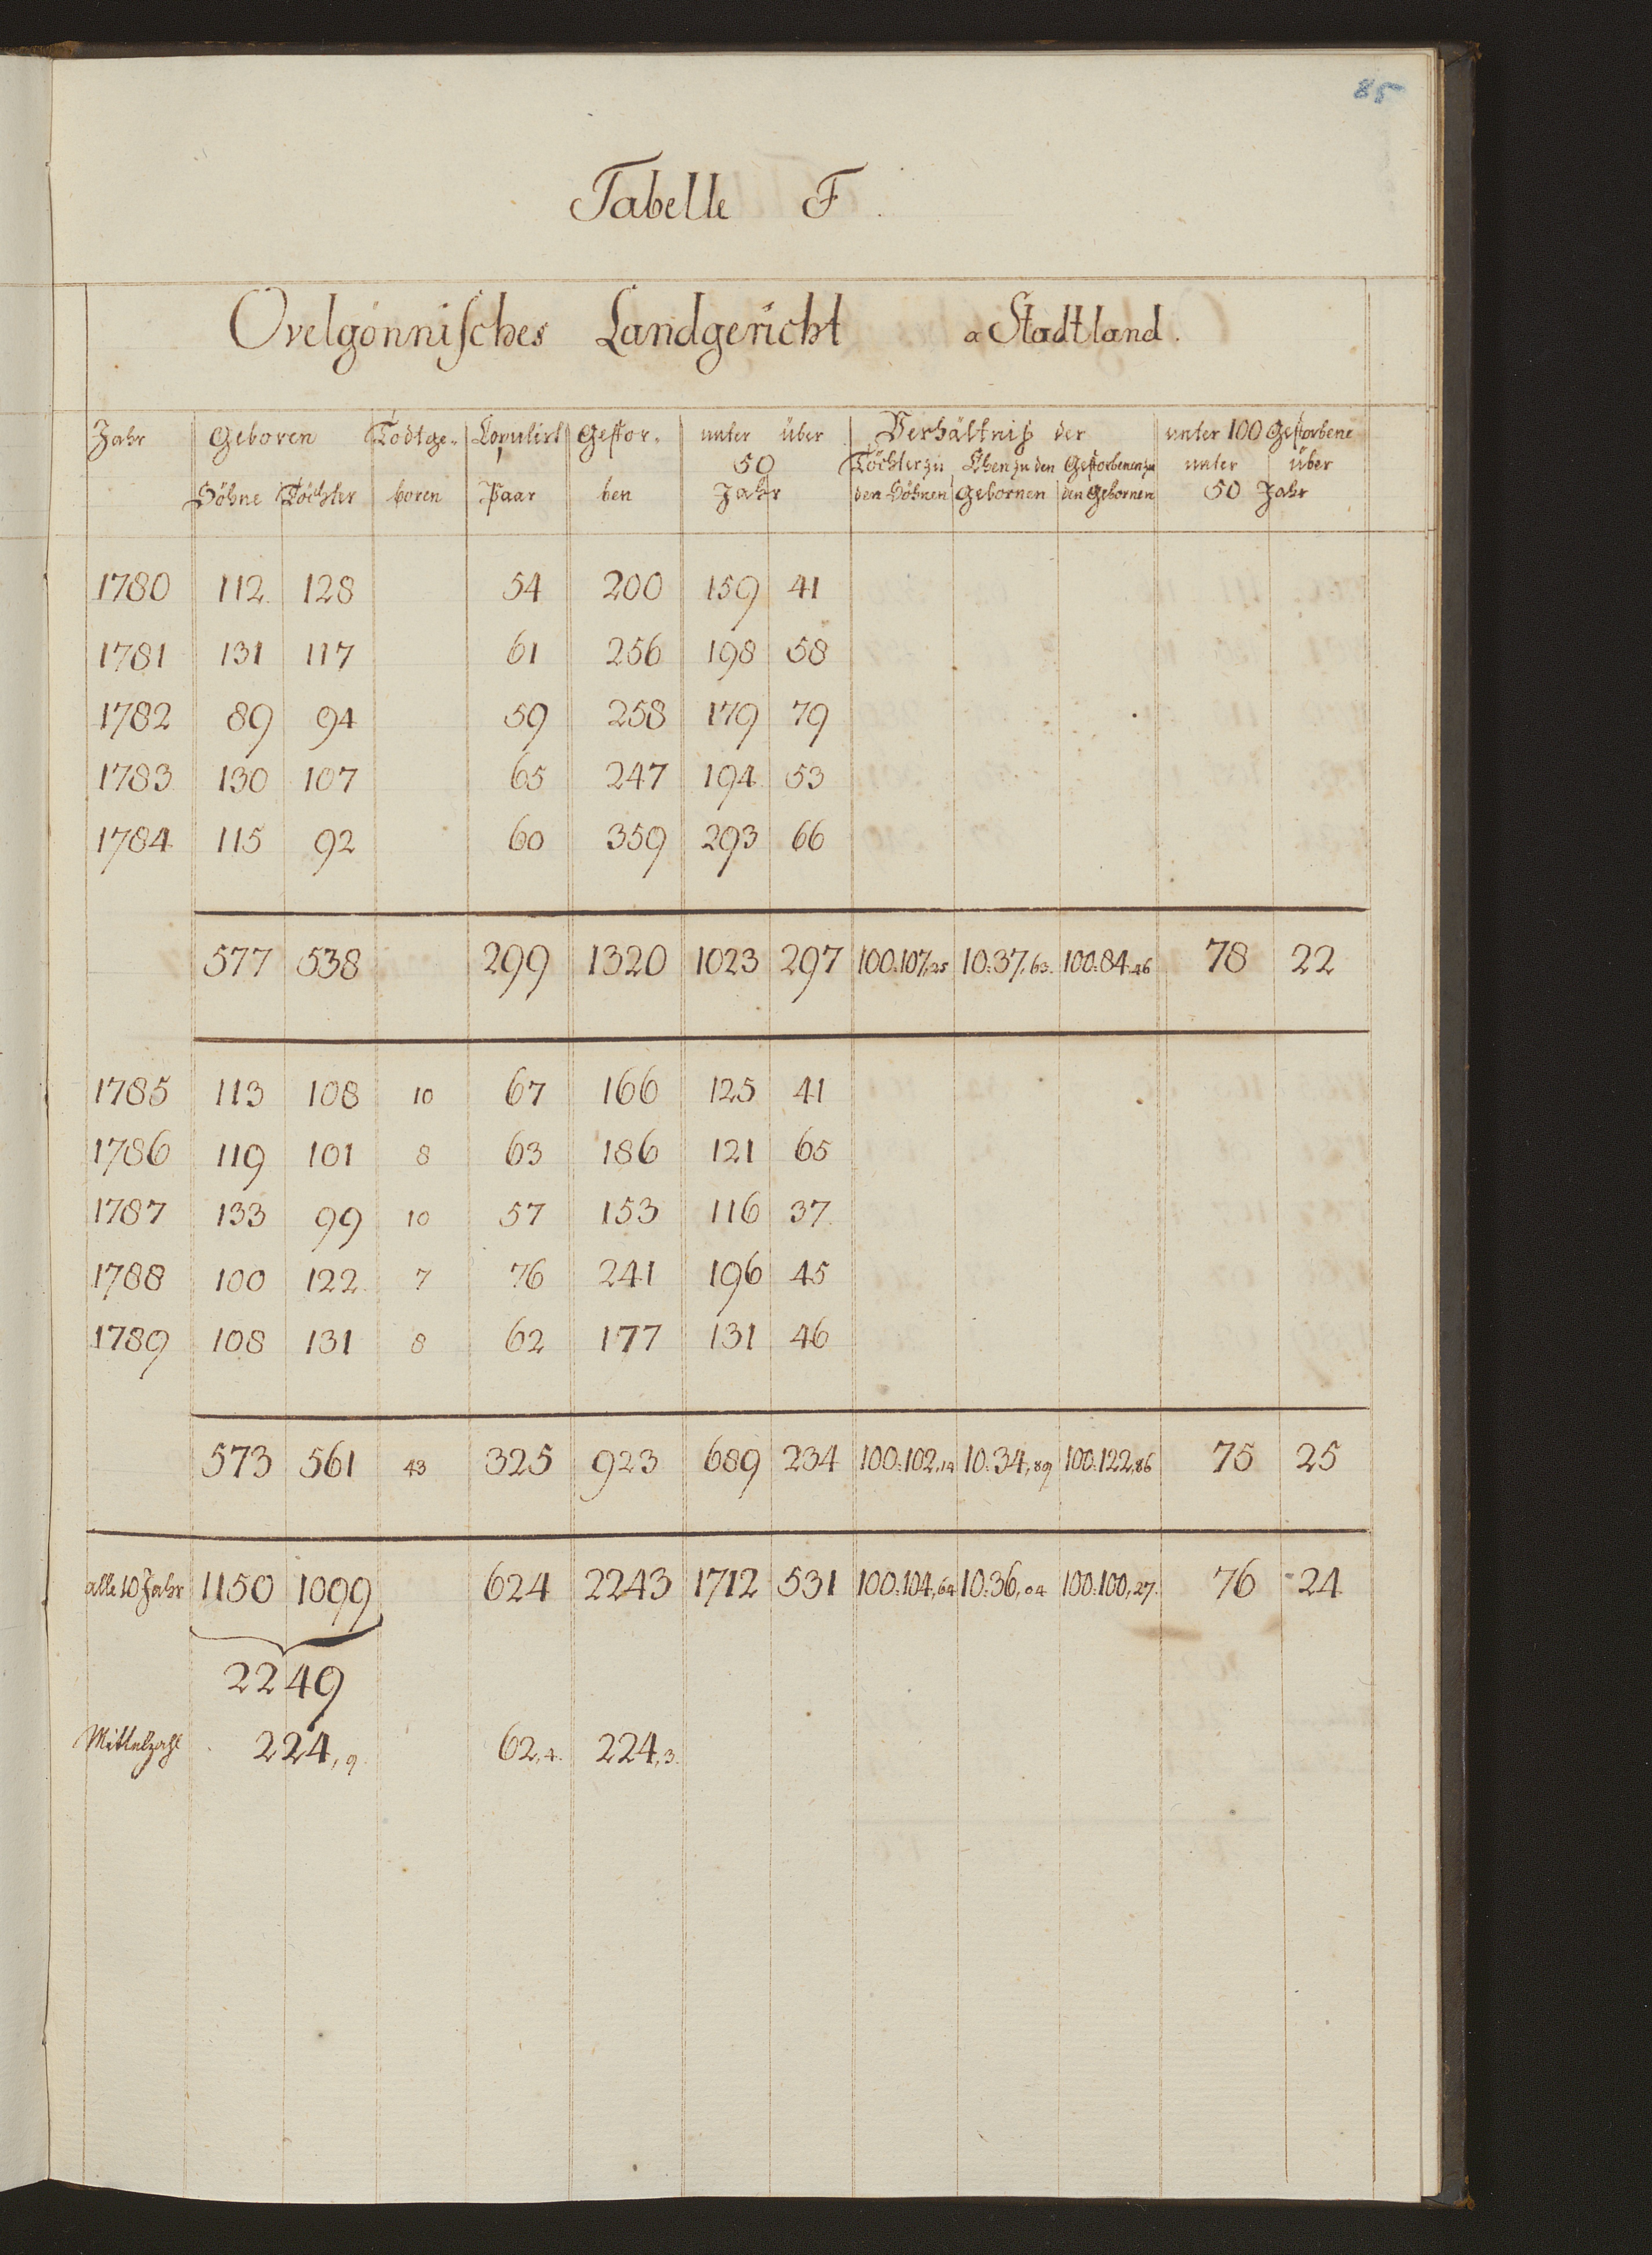 85
Tabelle F.
Ovelgönnisches Landgericht a Stadtland.
Jahr Geboren Todtge- Copulirt Gestor- unter über Verhältniß der unter 100 Gestorbene
50 Töchter zu Ehen zu den Gestorbenen zu unter über
Söhne Töchter boren Paar ben Jahr den Söhnen Gebornen den Gebornen 50 Jahr
1780 112 128 54 200 159 41
1781 131 117 61 256 198 58
1782 89 94 59 258 179 79
1783 130 107 65 247 194 53
1784 115 92 60 359 293 66
577 538 299 1320 1023 297 100:107,25 10:37,63 100:84,46 78 22
1785 113 108 10 67 166 125 41
1786 119 101 8 63 186 121 65
1787 133 99 10 57 153 116 37
1788 100 122 7 76 241 196 45
1789 108 131 8 62 177 131 46
573 561 43 325 923 689 234 100:102,14 10:34,89 100:122,86 75 25
alle 10 Jahr 1150 1099 624 2243 1712 531 100:104,64 10:36,04 100:100,27 76 24
2249
Mittelzahl 224,9 62,4 224,3